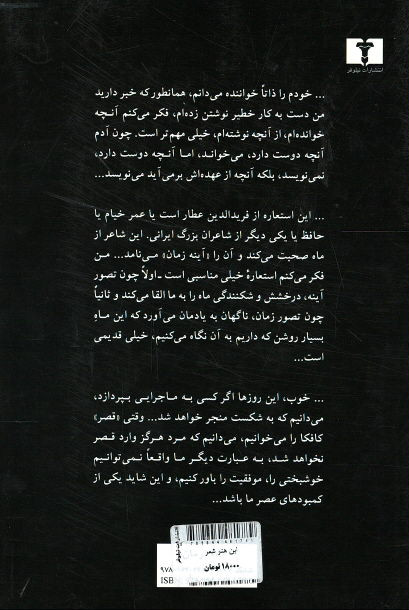 انتشارات نیلوفر
... خودم را ذاتاً خواننده می‌دانم، همانطور که خبر دارید
من دست به کار خطیر نوشتن زده‌ام، فکر می‌کنم آنچه
خوانده‌ام، از آنچه نوشته‌ام، خیلی مهم‌تر است. چون آدم
آنچه دوست دارد، می‌خواند، اما آنچه دوست دارد،
نمی‌نویسد، بلکه آنچه از عهده‌اش برمی‌آید می‌نویسد...
... این استعاره از فریدالدین عطار است یا عمر خیام یا
حافظ یا یکی دیگر از شاعران بزرگ ایرانی. این شاعر از
ماه صحبت می‌کند و آن را «آینه زمان» می‌نامد... من
فکر می‌کنم استعارهٔ خیلی مناسبی است ـ اولاً چون تصور
آینه، درخشش و شکنندگی ماه را به ما القا می‌کند و ثانیاً
چون تصور زمان، ناگهان به یادمان می‌آورد که این ماهِ
بسیار روشن که داریم به آن نگاه می‌کنیم، خیلی قدیمی
است...
... خوب، این روزها اگر کسی به ماجرایی بپردازد،
می‌دانیم که به شکست منجر خواهد شد... وقتی «قصر»
کافکا را می‌خوانیم، می‌دانیم که مرد هرگز وارد قصر
نخواهد شد، به عبارت دیگر ما واقعاً نمی‌توانیم
خوشبختی را، موفقیت را باور کنیم، و این شاید یکی از
کمبودهای عصر ما باشد...
این هنر شعر
۱۸۰۰۰ تومان
۹۷۸
ISBN